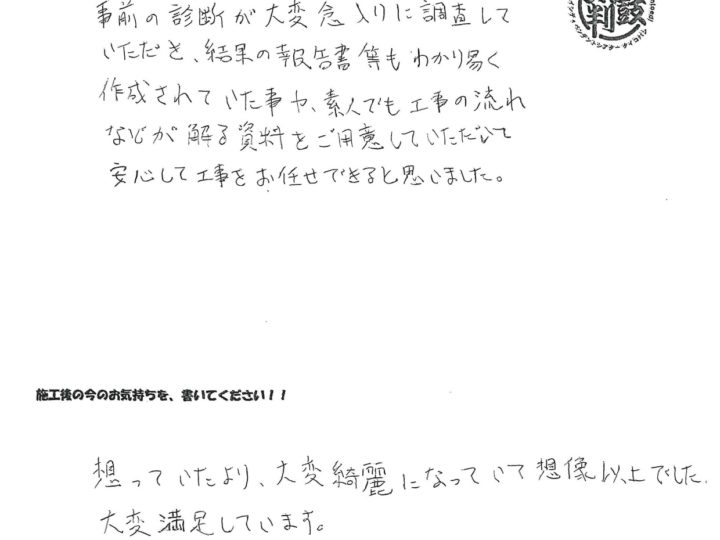 事前の診断が大変念入りに調査して
いただき、結果の報告書等もわかり易く
作成されていた事や、素人でも工事の流れ
などが解る資料をご用意していただいて
安心して工事をお任せできると思いました。
施工後の今のお気持ちを、書いてください！！
想っていたより、大変綺麗になっていて想像以上でした。
大変満足しています。